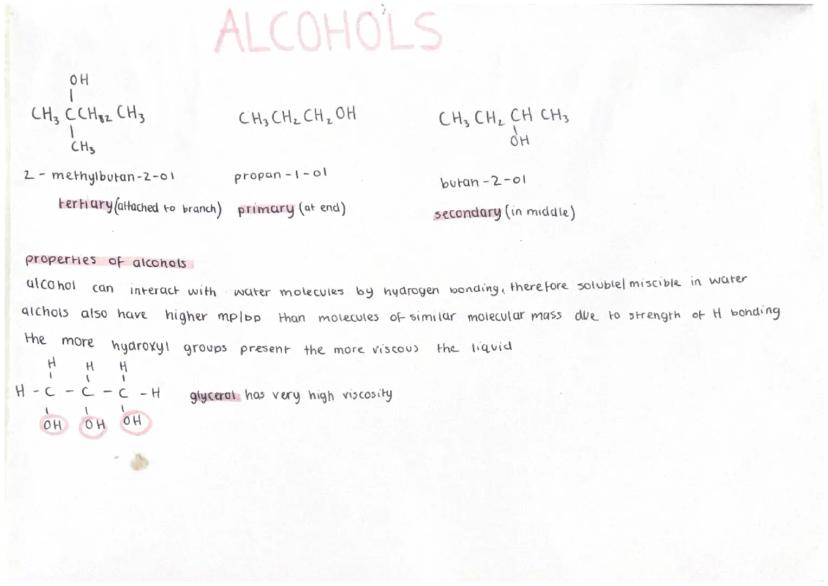 ALCOHOLS
OH
CH3 CCH2 CH3
CH3
2 - methylbutan-2-ol
tertiary (attached to branch)
CH3CH2CH2OH
propan-1-ol
primary (at end)
CH3 CH2 CH CH3
OH
butan-2-ol
secondary (in middle)
properties of alcohols
alcohol can interact with water molecules by hydrogen bonding, therefore soluble/miscible in water
alchols also have higher mp/bp than molecules of similar molecular mass due to strength of H bonding
the more hydroxyl groups present the more viscous the liquid
H H H
H - C - C - C - H
OH OH OH
glycerol has very high viscosity